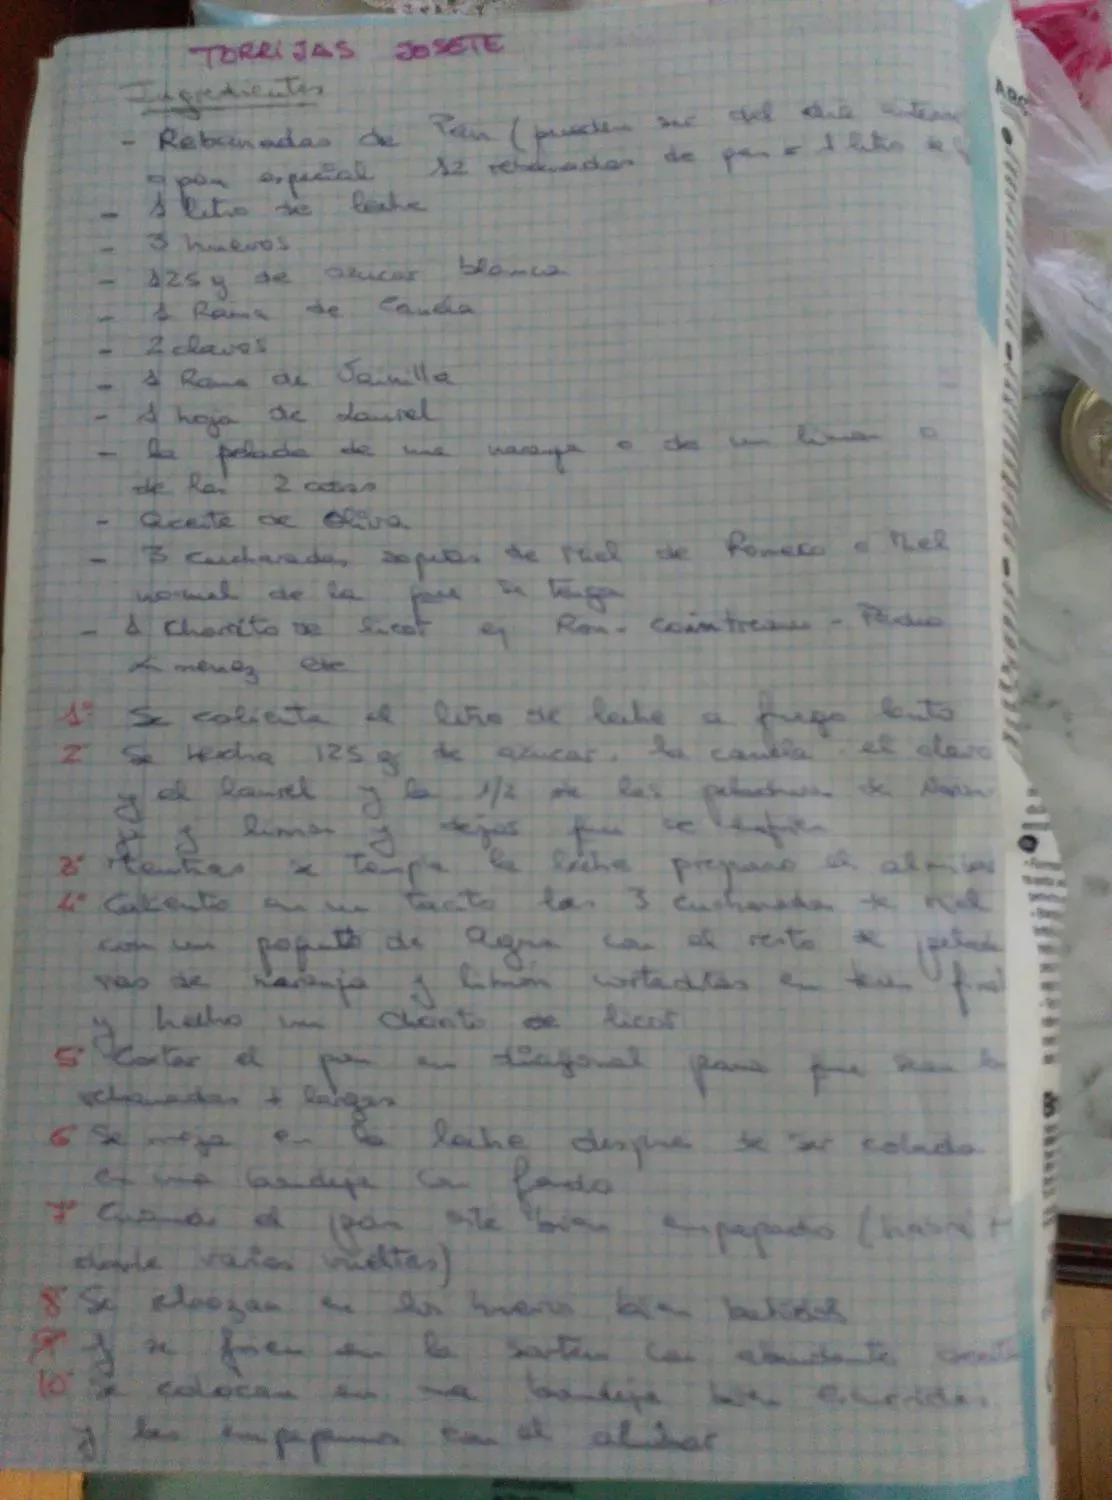 TORRIJAS JOSETE
Ingredientes
- Rebanadas de Pan (pueden ser del día anterior
o pan especial 12 rebanadas de pan = 1 litro de
- 1 litro de leche
- 3 huevos
- 125 g de azucar blanca
- 1 Rama de Canela
- 2 clavos
- 1 Rama de Vainilla
- 1 hoja de Laurel
- la pelada de una naranja o de un limon o
de las 2 cosas
- aceite de Oliva
- 3 cucharadas soperas de Miel de Romero o Miel
normal de la que se tenga
- 1 Chorrito de licor ej Ron - Cointreau - Pedro
Ximenez etc
1º Se calienta el litro de leche a fuego lento
2º Se hecha 125 g de azucar, la canela, el clavo
y el laurel y la 1/2 de las peladuras de Naran
ja y limon y dejar que se enfrie
3º Mientras se templa la leche preparo el almibar
4º Caliento en un cacito las 3 cucharadas de Miel
con un poquito de Agua con el resto de pelad
ras de naranja y limón cortaditas en fino
y hecho un chorrito de licor
5º Cortar el pan en diagonal para que sean la
rebanadas + largas
6º Se moja en la leche despues de ser colada
en una bandeja con fondo
7º Cuando el pan este bien empapado (habra
darle varias vueltas)
8º Se rebozan en los huevos bien batidos
9º Y se frien en la sarten con abundante aceite
10º Se colocan en una bandeja bien escurridas
y las empapamos con el almibar